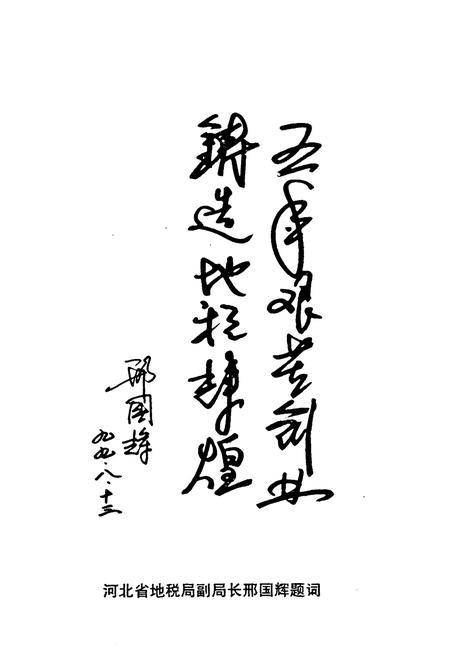 五年艰苦创业
鑄造地税辉煌
邢国辉
九九.八.十三
河北省地税局副局长邢国辉题词